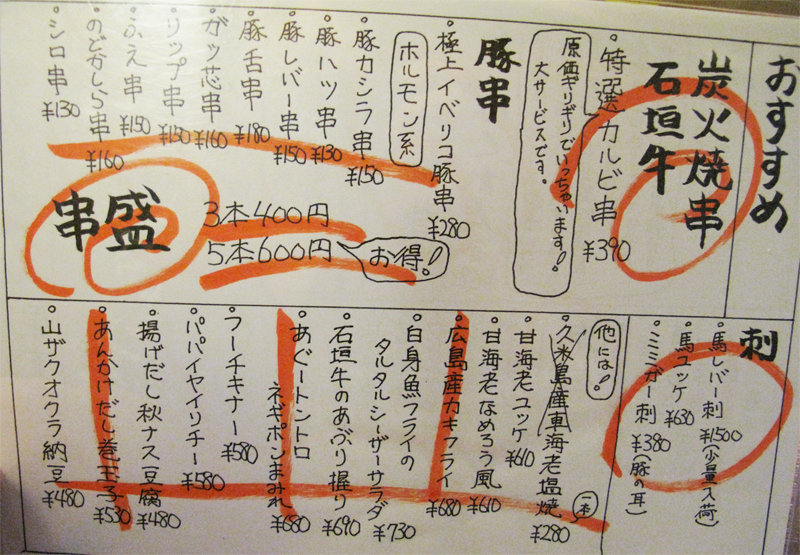 おすすめ
炭火焼串
石垣牛
・特選カルビ串 ¥390
原価ギリギリでいっちゃいます!
大サービスです。
豚串
・極上イベリコ豚串 ¥280
ホルモン系
・豚カシラ串 ¥150
・豚ハツ串 ¥130
・豚レバー串 ¥150
・豚舌串 ¥180
・ガツ芯串 ¥160
・リップ串 ¥150
・ふえ串 ¥150
・のどかしら串 ¥160
・シロ串 ¥130
串盛
3本400円
5本600円
お得!
刺
・馬レバー刺 ¥1500(少量入荷)
・馬ユッケ ¥630
・ミミガー刺 ¥380(豚の耳)
他には!
・久米島産車海老塩焼(一本) ¥280
・甘海老ユッケ ¥610
・甘海老なめろう風 ¥610
・広島産カキフライ ¥680
・白身魚フライの
タルタルシーザーサラダ ¥730
・石垣牛のあぶり握り ¥690
・あぐートントロ
ネギポンまみれ ¥680
・フーチキナー ¥580
・パパイヤイリチー ¥580
・揚げだし秋ナス豆腐 ¥480
・あんかけだし巻玉子 ¥530
・山ザクオクラ納豆 ¥480